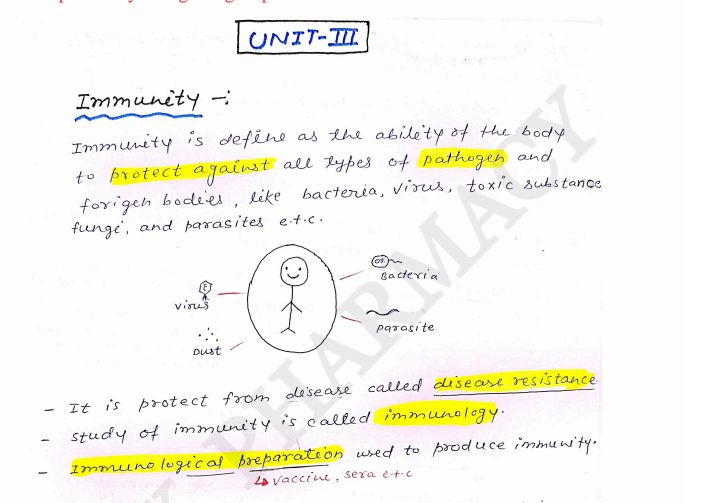 UNIT-III
Immunity -:
Immunity is define as the ability of the body
to protect against all types of pathogen and
forigen bodies, like bacteria, virus, toxic substance
fungi, and parasites e.t.c.
Bacteria
virus
parasite
Dust
- It is protect from disease called disease resistance
- study of immunity is called immunology.
- Immunological preparation used to produce immunity.
↳ vaccine, sera e.t.c
PHARMACY